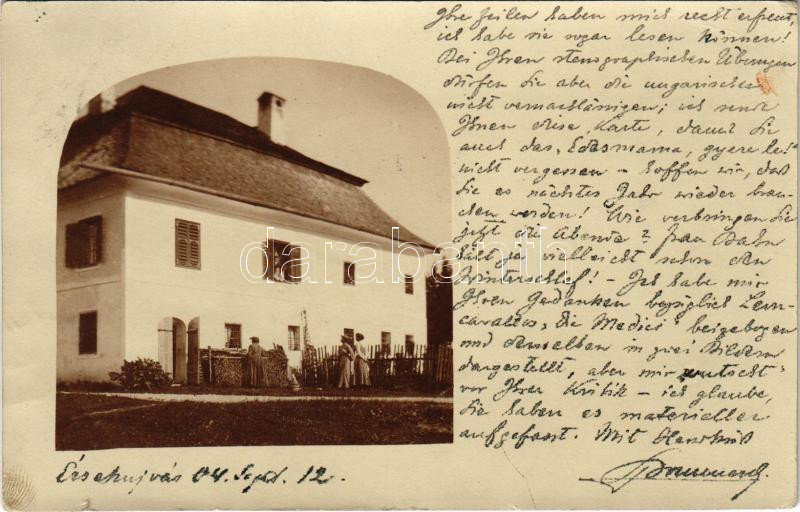 Ihre Zeilen haben mich recht erfreut,
ich habe sie sogar lesen können!
Bei Ihren stenographischen Übungen
dürfen Sie aber die ungarischen
nicht vernachlässigen; ich sende
Ihnen diese Karte, damit Sie
auch das „Edesmama, gyere le!"
nicht vergessen - hoffen wir, daß
Sie es nächtes Jahr wieder brau-
chen werden! Wie verbringen Sie
jetzt die Abende? Frau
hält ja vielleicht schon den
Winterschlaf! - Ich habe mir
Ihren Gedanken bezüglich Leon-
cavallos „Die Medici" beigebogen
und denselben in zwei Bildern
dargestellt, aber mir
vor Ihrer Kritik - ich glaube,
Sie haben es materieller
aufgefasst. Mit Handkuß
Érsekujvár 04. Sept. 12.
darabanth